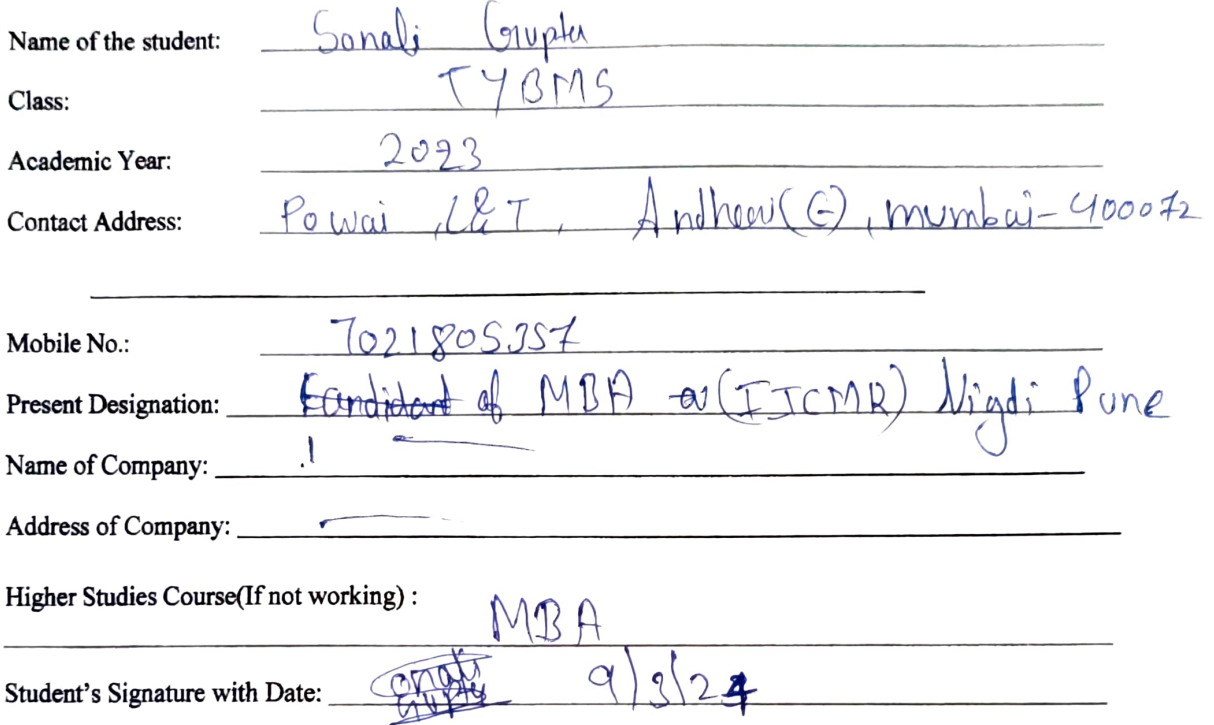 Name of the student: Sonali Gupta
Class: TYBMS
Academic Year: 2023
Contact Address: Powai, L&T, Andheri(E), mumbai-400072
Mobile No.: 7021805357
Present Designation: of MBA (IICMR) Nigdi Pune
Name of Company:
Address of Company:
Higher Studies Course(If not working) :
MBA
Student's Signature with Date: Sonali Gupta 9/3/24